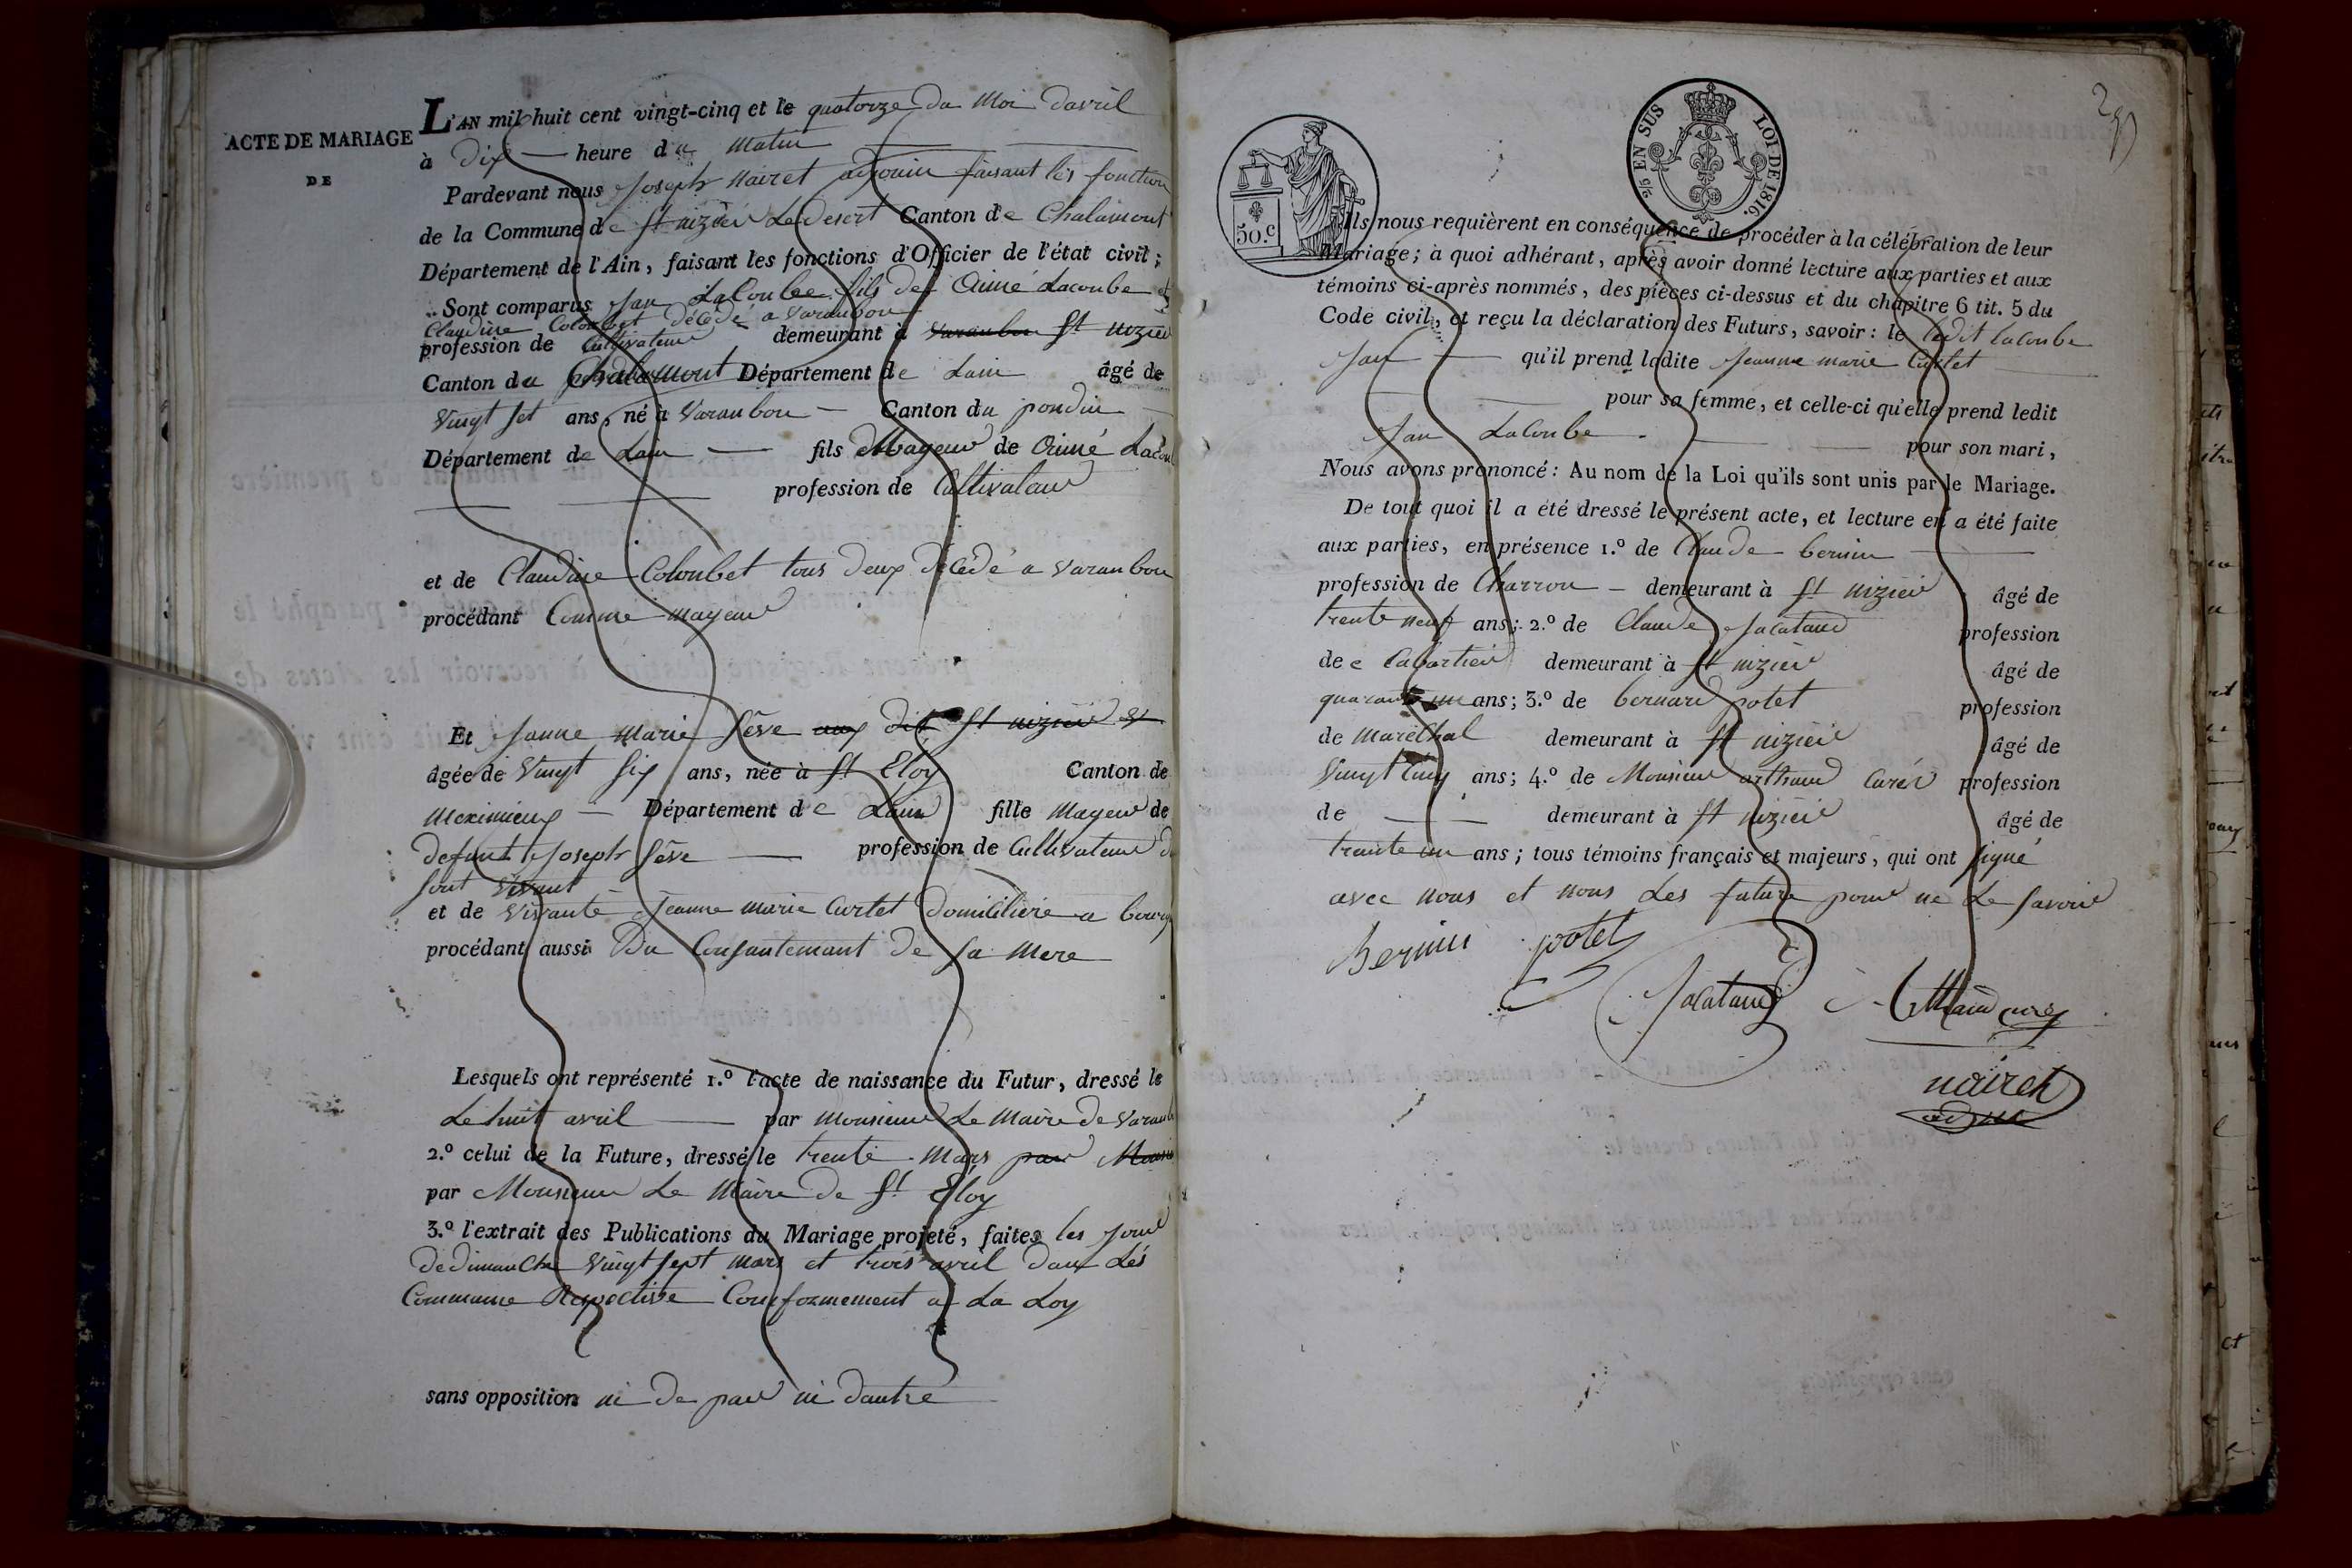 ACTE DE MARIAGE
DE
L'AN mil huit cent vingt-cinq et le quatorze du Moi davril
à Dix heure du Matin
Pardevant nous Joseph Nairet adjouin faisant les fonction
de la Commune de St nizier Le desert Canton de Chalamont
Département de l'Ain, faisant les fonctions d'Officier de l'état civil;
Sont comparus Jan LaCoube fils de Aimé Lacoube et
Claudine Coloubet décédé a Varanbon
profession de Cultivateur demeurant à Varanbon St nizier
Canton du Chalamont Département de Lain âgé de
Vingt set ans, né à Varanbon Canton du pondin
Département de Lain fils Mageur de Aimé Lacou
profession de Cultivateur
et de Claudine Coloubet tous deux décédé a Varanbon
procédant Comme mageur
Et Janne Marie Sêve aux dit St nizier et
âgée de Vingt six ans, née à St Eloy Canton de
meximieux Département de Lain fille Mageur de
defunt Joseph Sêve profession de Cultivateur d
sont vivant
et de Vivante Jeanne marie Curtet Domiciliere a bourg
procédant aussi Du Consantemant de sa Mere
Lesquels ont représenté 1.º l'acte de naissance du Futur, dressé le
Le huit avril par Monsieur Le Maire de Varanb
2.º celui de la Future, dressé le trente Mars par Monsi
par Monsieur Le Maire de St Eloy
3.º l'extrait des Publications du Mariage projeté, faites les jour
de dimanche Vingt sept mars et trois avril dans Lés
Commune Respective Conformement a La Loy
sans opposition ni De part ni dautre
50.c
2/5 EN SUS LOI DE 1816.
Ils nous requièrent en conséquence de procéder à la célébration de leur
Mariage; à quoi adhérant, après avoir donné lecture aux parties et aux
témoins ci-après nommés, des pièces ci-dessus et du chapitre 6 tit. 5 du
Code civil, et reçu la déclaration des Futurs, savoir: le Ledit lacoube
Jan qu'il prend ladite Jeanne marie Curtet
pour sa femme, et celle-ci qu'elle prend ledit
Jan LaCoube pour son mari,
Nous avons prononcé: Au nom de la Loi qu'ils sont unis par le Mariage.
De tout quoi il a été dressé le présent acte, et lecture en a été faite
aux parties, en présence 1.º de Claude bernin
profession de Charron demeurant à St nizier âgé de
trente neuf ans; 2.º de Claude Jacataud profession
de Cabartier demeurant à St nizier âgé de
quarante un ans; 3.º de bernard potet profession
de maréchal demeurant à St nizier âgé de
Vingt Cinq ans; 4.º de Monsieur arthaud Curér profession
de demeurant à St nizier âgé de
trante un ans; tous témoins français et majeurs, qui ont signé
avec nous et nous Les future pour ne Le savoir
Bernin potet
Jacataud Arthaud curé
nairet
adjoin